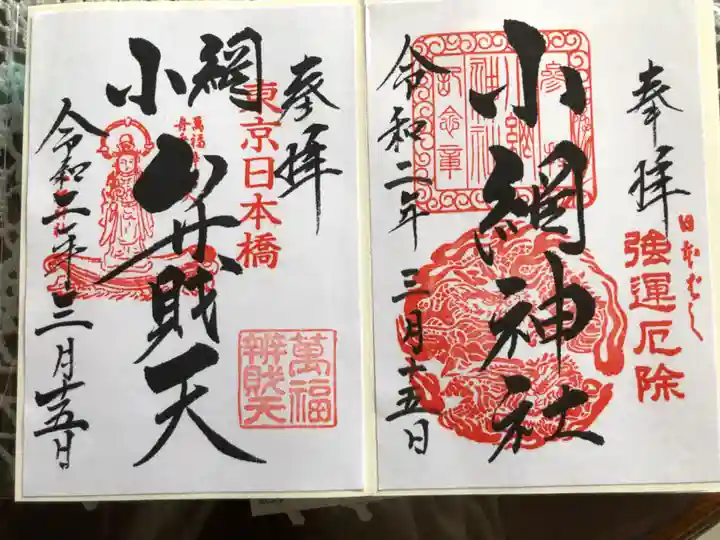 奉拝
日本ばし
強運厄除
小網神社
参拝
小網
神社
記念章
令和二年 三月十五日
奉拝
東京日本橋
小網
弁財天
萬福
辨財天
令和二年 三月十五日